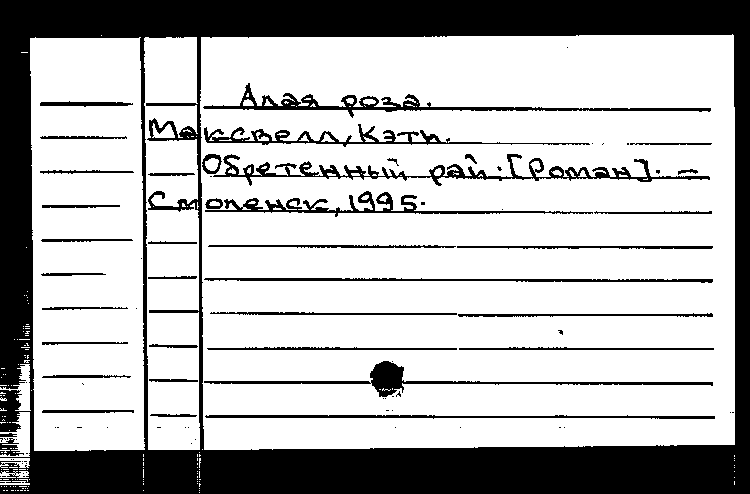 Алая роза.
Максвелл, Кэти.
Обретенный рай: [Роман]. —
Смоленск, 1995.